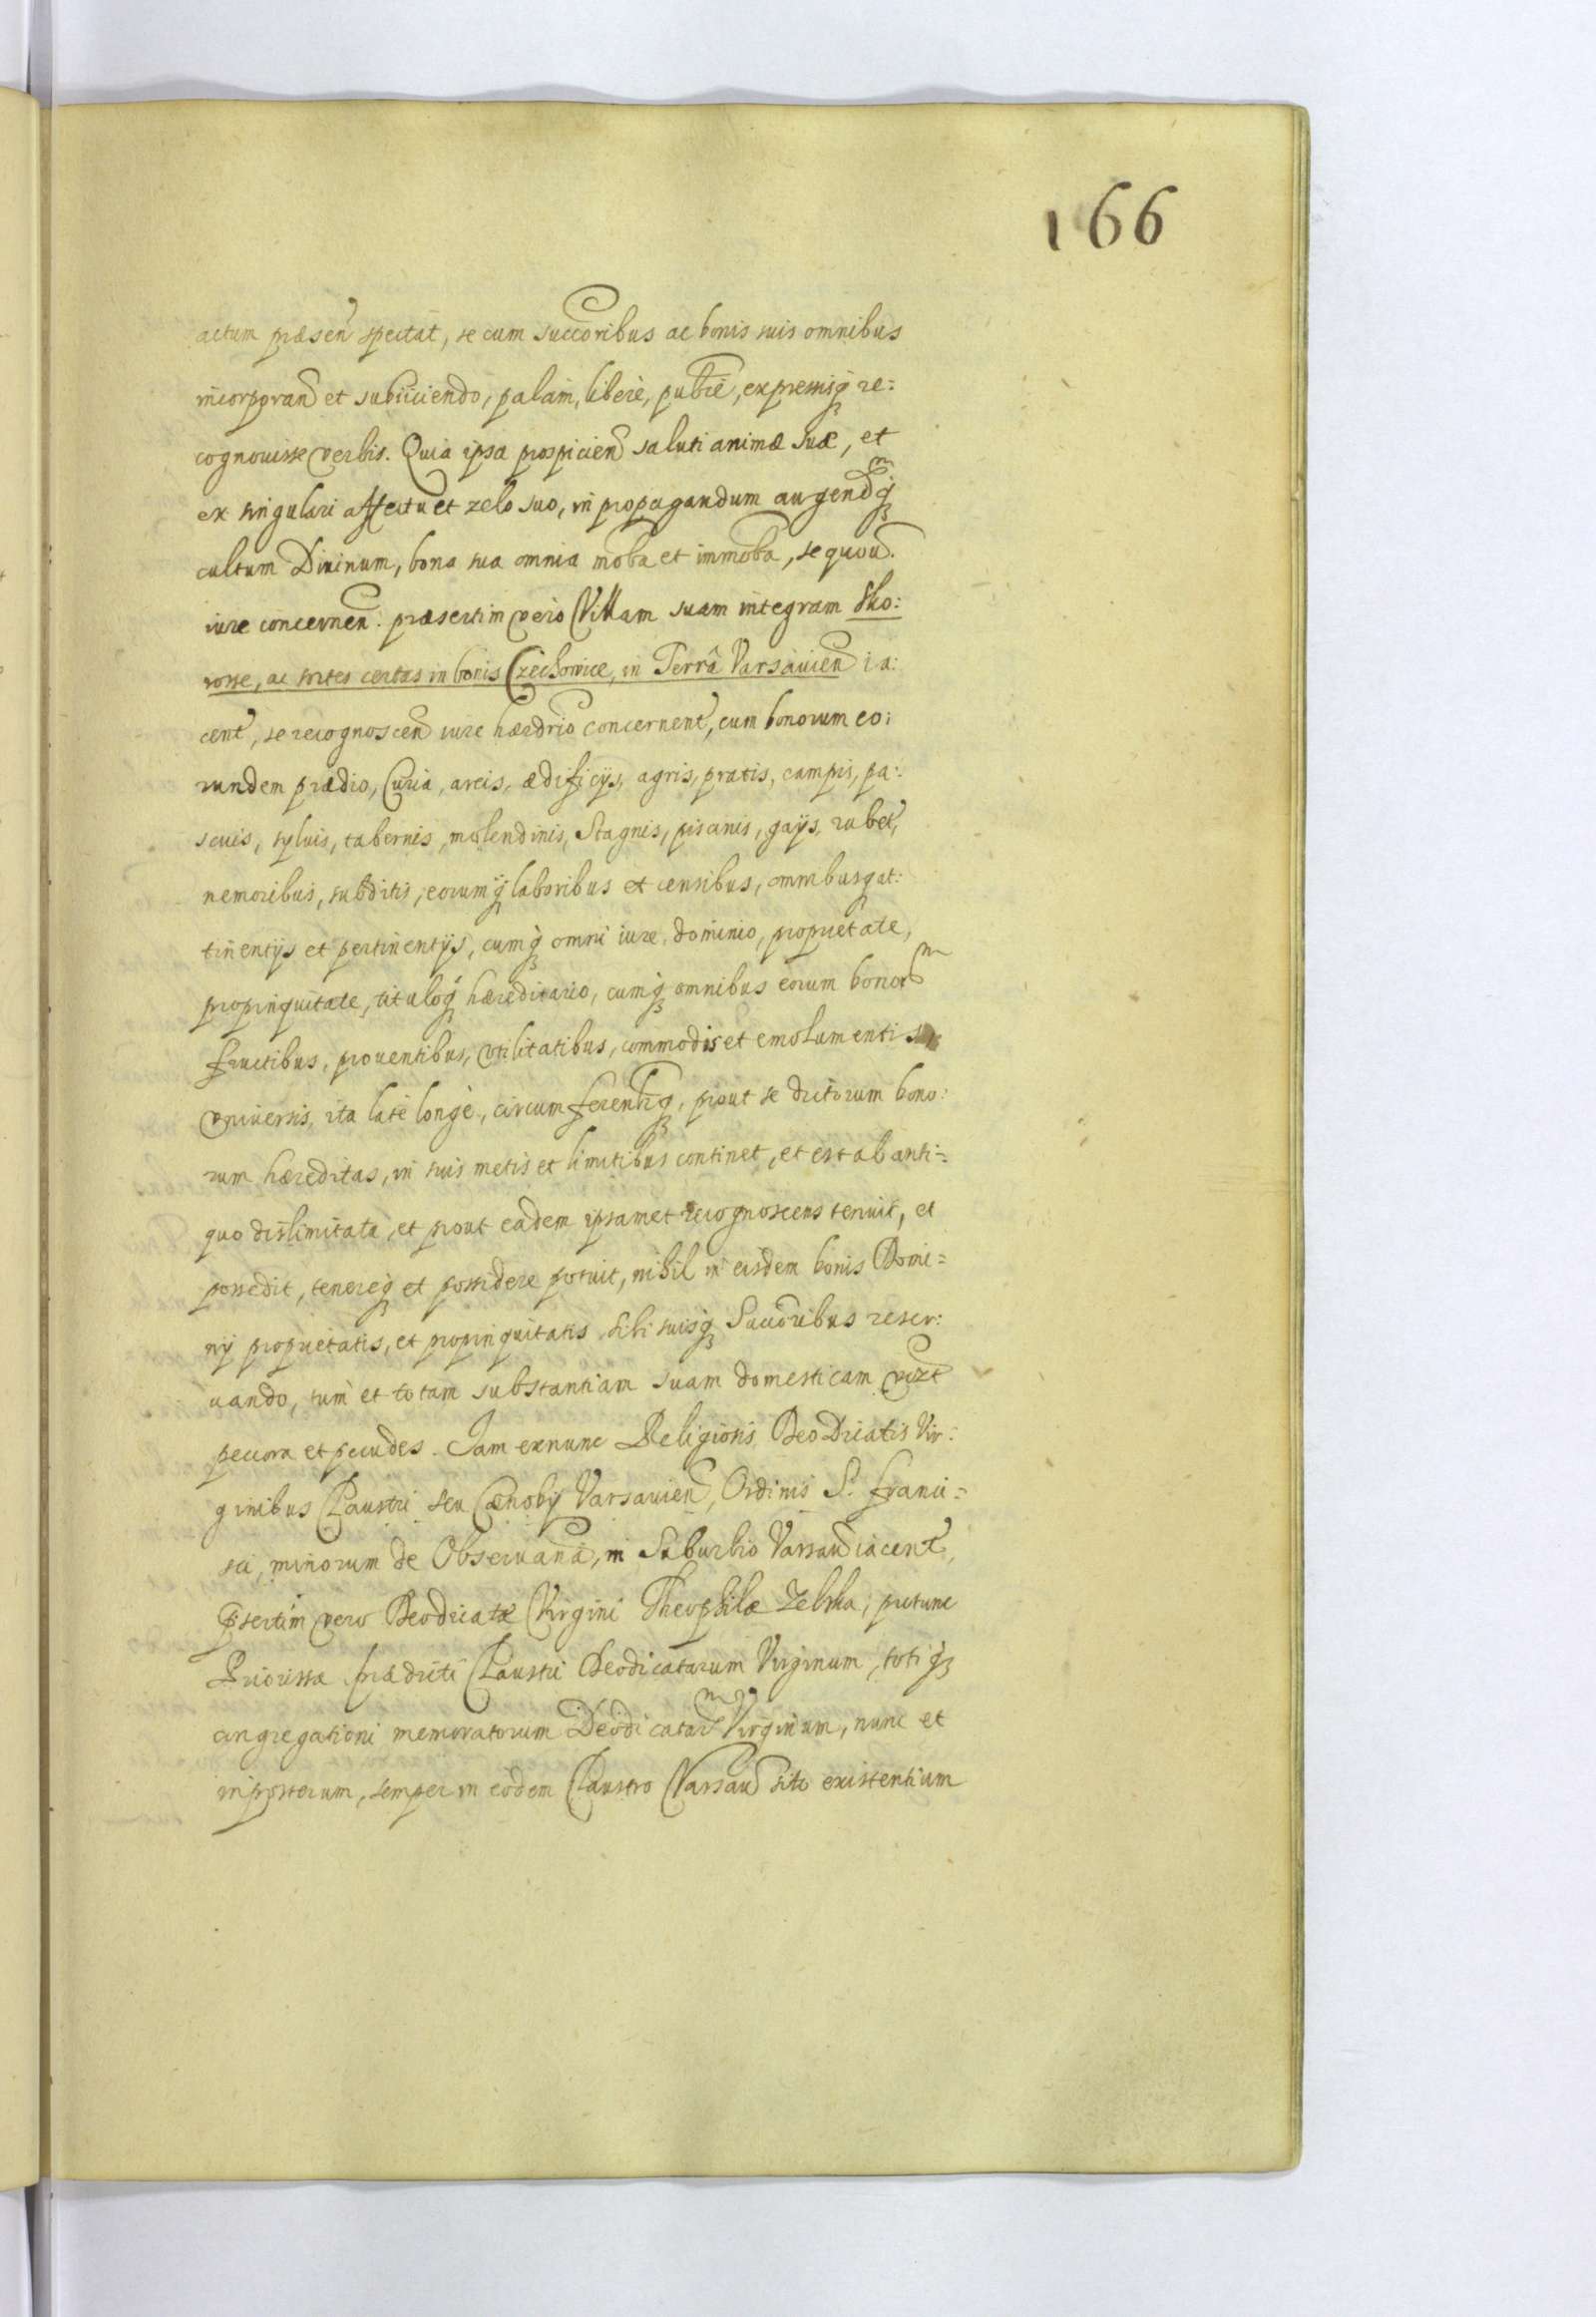 166
actum præsen spectat, se cum succoribus ac bonis suis omnibus
incorporan et subiiciendo, palam, libere, publie, expressisq re:
cognouisse verbis. Quia ipsa prospicien saluti animæ suæ, et
ex singulari affectu et zelo suo, in propagandum augendmq
cultum Diuinum, bona sua omnia moba et immoba, se quou
iure concernen: præsertim vero Villam suam integram Sko:
rosse, ac sortes certas in bonis Czechowice, in Terrâ Varsauien ia:
cent, se recognoscen iure hærdrio concernent, cum bonorum eo:
rundem prædio, Curia, areis, ædificijs, agris, pratis, campis, pa:
scuis, syluis, tabernis, molendinis, Stagnis, piscinis, gays, rubet,
nemoribus, subditis, eorumq laboribus et censibus, omnibusq at:
tinentijs et pertinentijs, cumq omni iure, dominio, proprietate,
propinquitate, tituloq hæreditario, cumq omnibus eorum bonorm
fructibus, prouentibus, vtilitatibus, commodis et emolumentis
vniuersis, ita late longe, circumferentq, prout se dictorum bono:
rum hæreditas, in suis metis et limitibus continet, et est ab anti=
quo dislimitata, et prout eadem ipsamet recognoscens tenuit, et
possedit, tenereq et possidere potuit, nihil in eisdem bonis Domi=
nij proprietatis, et propinquitatis sibi suisq Succoribus reser:
uando, tum et totam substantiam suam domesticam vizt
peccora et pecudes. Iam exnunc Religiosis Deo Dicatis Vir:
ginibus Claustri seu Cænobij Varsauien, Ordinis S. Franci=
sci, minorum de Obseruana, in Suburbio Varsau iacent,
psertim vero Deodicatæ Virgini Theophilæ Zelska, protunc
Priorissæ prædicti Claustri Deodicatarum Virginum, totiq
congregationi memoratorum Deodicatarm Virginum, nunc et
inposterum, semper in eodem Claustro Varsau sito existentium